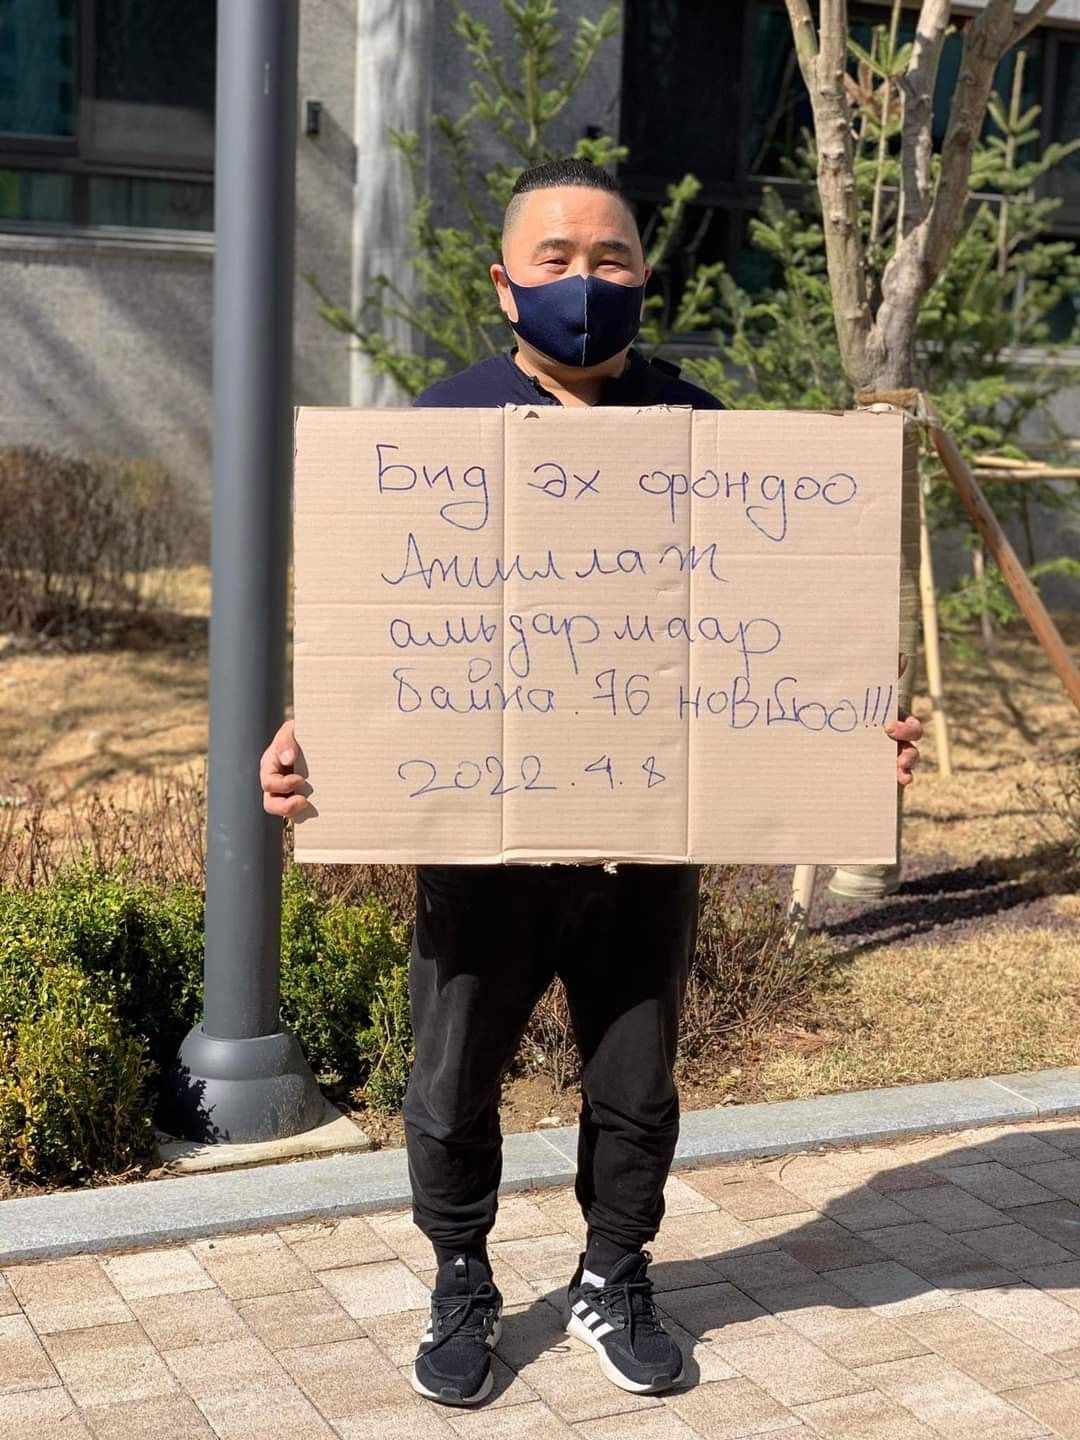 Бид эх орондоо
Ажиллаж
амьдармаар
байна. 76
2022.4.8